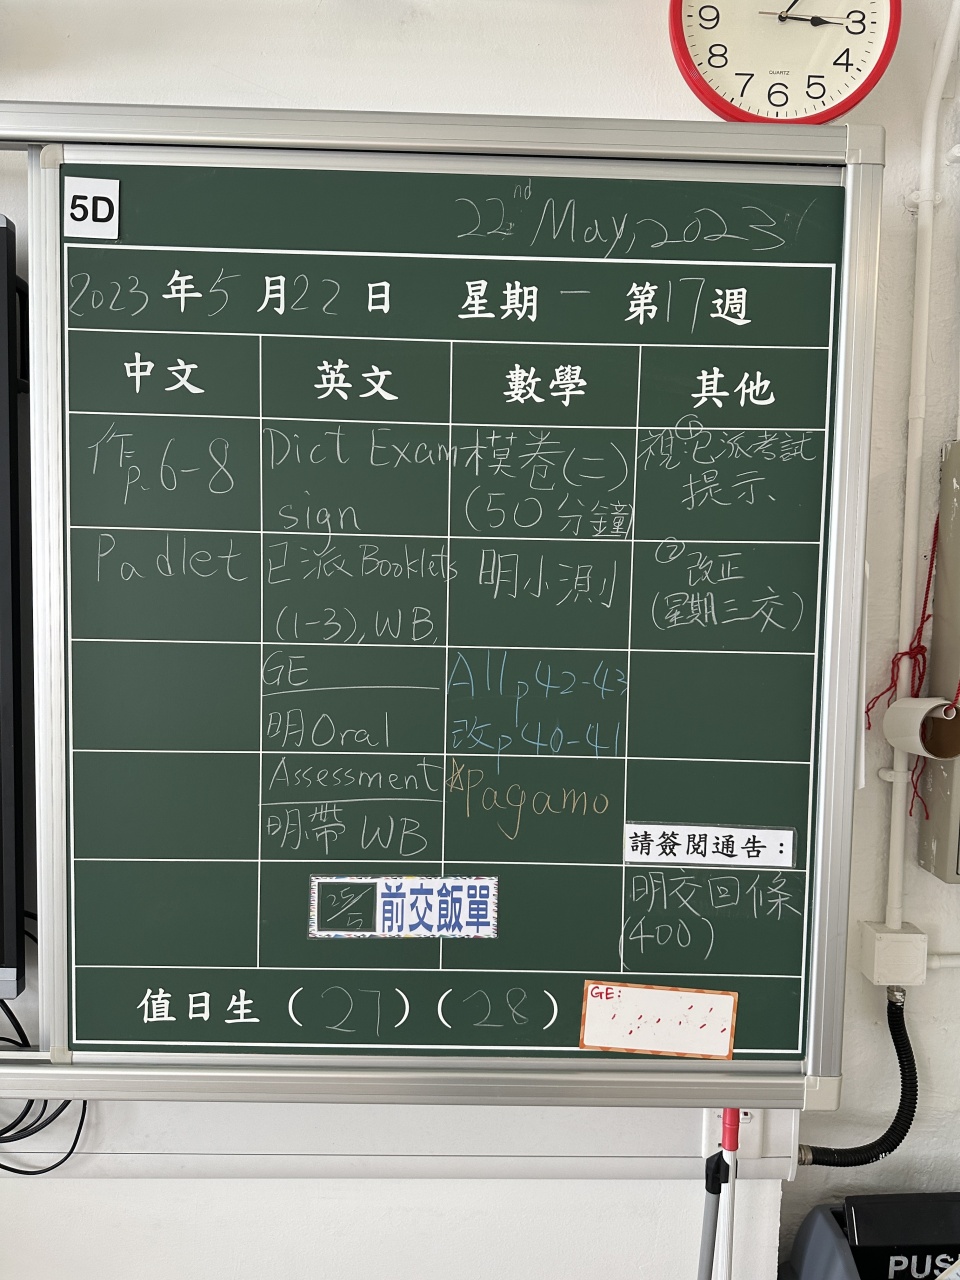 9
3
8
4
QUARTZ
7
5
6
5D
22nd May, 2023
2023年5月22日 星期一 第17週
中文 英文 數學 其他
作p.6-8
Dict Exam
sign
模卷(二)
(50分鐘)
① 視已派考試
提示、
Padlet
已派Booklets
(1-3), WB,
明小測
② 改正
(星期三交)
GE
明Oral
All p42-43
改p40-41
Assessment
明帶WB
☆Pagamo
請簽閱通告：
明交回條
(400)
25/5 前交飯單
值日生 (27) (28)
GE:
PUS